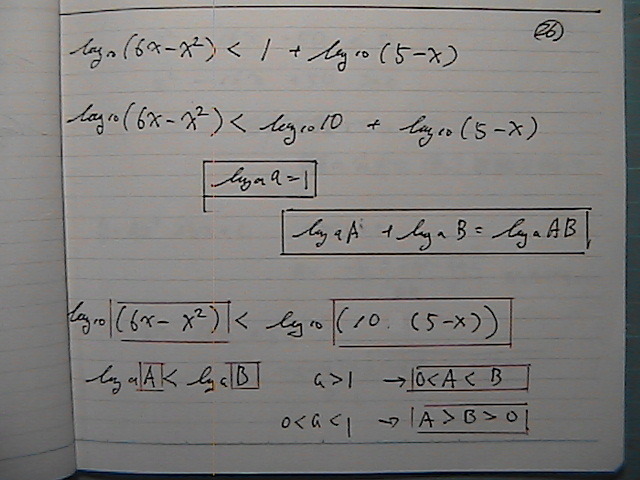 26
log₁₀(6x-x²) < 1 + log₁₀(5-x)
log₁₀(6x-x²) < log₁₀10 + log₁₀(5-x)
logₐa=1
logₐA + logₐB = logₐAB
log₁₀(6x-x²) < log₁₀(10.(5-x))
logₐA < logₐB a>1 → 0<A<B
0<a<1 → A>B>0